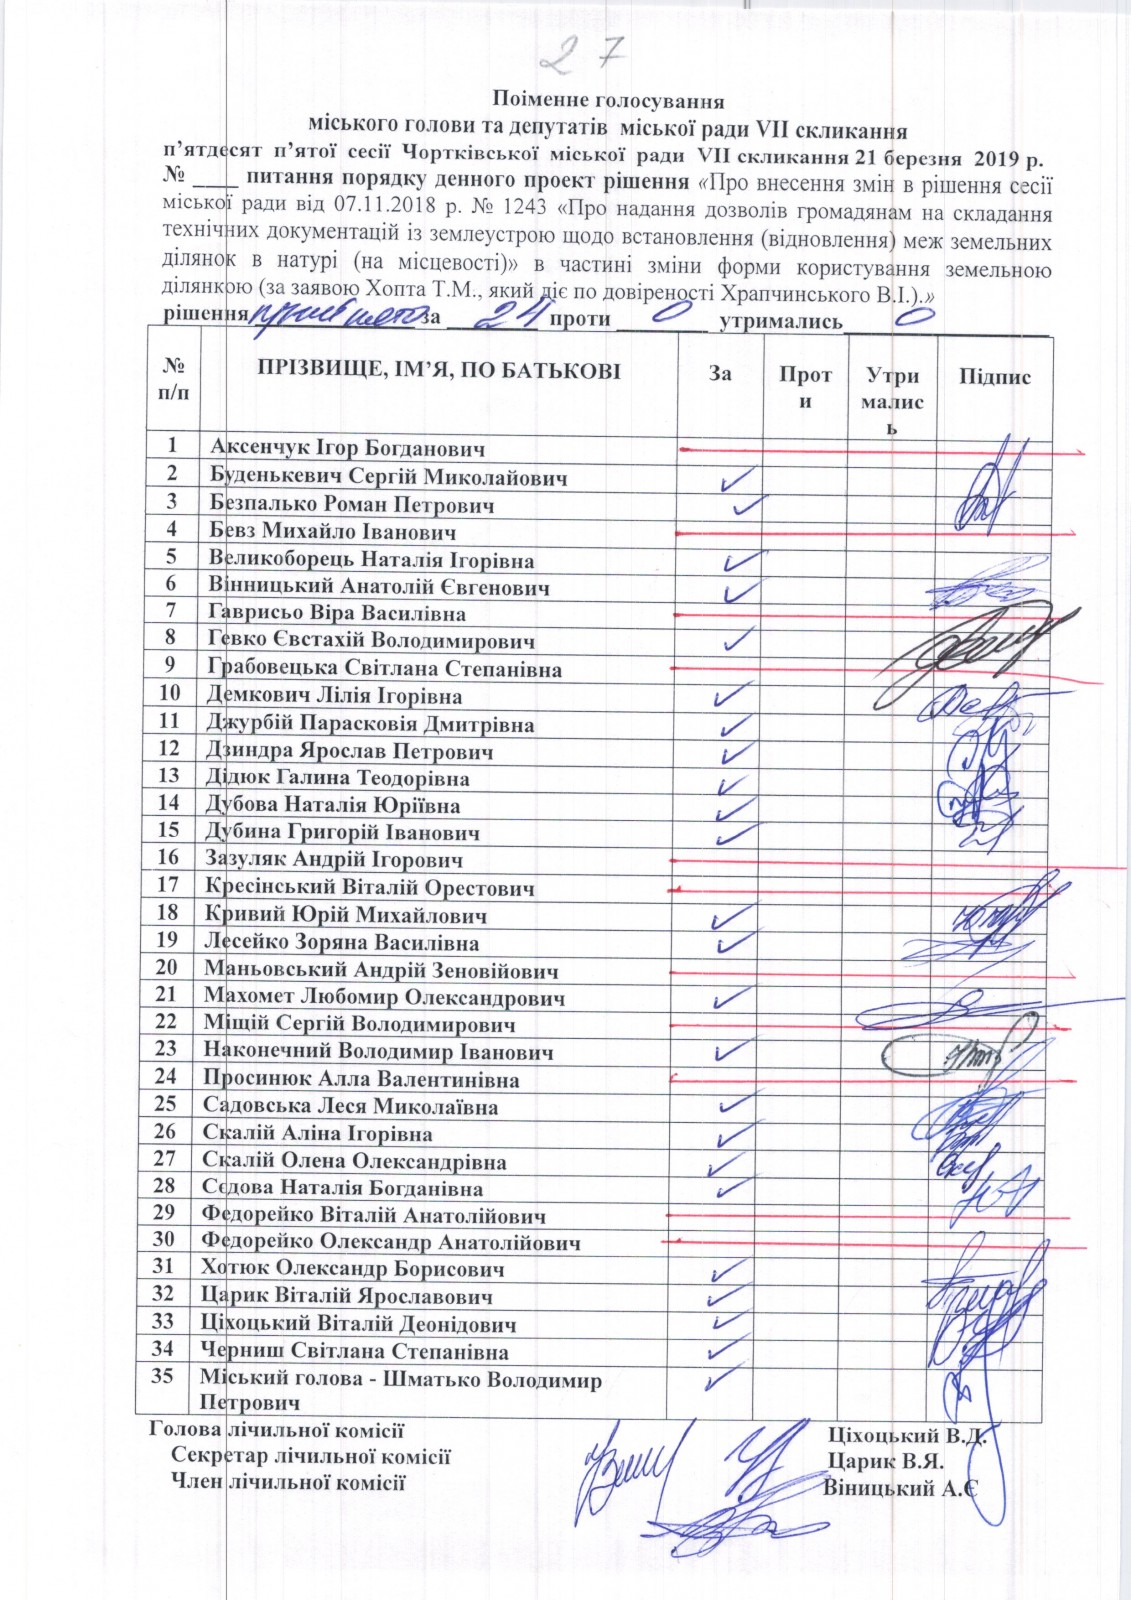 27
Поіменне голосування
міського голови та депутатів міської ради VII скликання
п’ятдесят п’ятої сесії Чортківської міської ради VII скликання 21 березня 2019 р.
№ ____ питання порядку денного проект рішення «Про внесення змін в рішення сесії
міської ради від 07.11.2018 р. № 1243 «Про надання дозволів громадянам на складання
технічних документацій із землеустрою щодо встановлення (відновлення) меж земельних
ділянок в натурі (на місцевості)» в частині зміни форми користування земельною
ділянкою (за заявою Хопта Т.М., який діє по довіреності Храпчинського В.І.).»
рішення прийнято за 24 проти 0 утримались 0
№ п/п ПРІЗВИЩЕ, ІМ’Я, ПО БАТЬКОВІ За Проти Утримались Підпис
1 Аксенчук Ігор Богданович
2 Буденькевич Сергій Миколайович ✓
3 Безпалько Роман Петрович ✓
4 Бевз Михайло Іванович
5 Великоборець Наталія Ігорівна ✓
6 Вінницький Анатолій Євгенович ✓
7 Гаврисьо Віра Василівна
8 Гевко Євстахій Володимирович ✓
9 Грабовецька Світлана Степанівна
10 Демкович Лілія Ігорівна ✓
11 Джурбій Парасковія Дмитрівна ✓
12 Дзиндра Ярослав Петрович ✓
13 Дідюк Галина Теодорівна ✓
14 Дубова Наталія Юріївна ✓
15 Дубина Григорій Іванович ✓
16 Зазуляк Андрій Ігорович
17 Кресінський Віталій Орестович
18 Кривий Юрій Михайлович ✓
19 Лесейко Зоряна Василівна ✓
20 Маньовський Андрій Зеновійович
21 Махомет Любомир Олександрович ✓
22 Міщій Сергій Володимирович
23 Наконечний Володимир Іванович ✓
24 Просинюк Алла Валентинівна
25 Садовська Леся Миколаївна ✓
26 Скалій Аліна Ігорівна ✓
27 Скалій Олена Олександрівна ✓
28 Сєдова Наталія Богданівна ✓
29 Федорейко Віталій Анатолійович
30 Федорейко Олександр Анатолійович
31 Хотюк Олександр Борисович ✓
32 Царик Віталій Ярославович ✓
33 Ціхоцький Віталій Деонідович ✓
34 Черниш Світлана Степанівна ✓
35 Міський голова - Шматько Володимир ✓
Петрович
Голова лічильної комісії Ціхоцький В.Д.
Секретар лічильної комісії Царик В.Я.
Член лічильної комісії Віницький А.Є